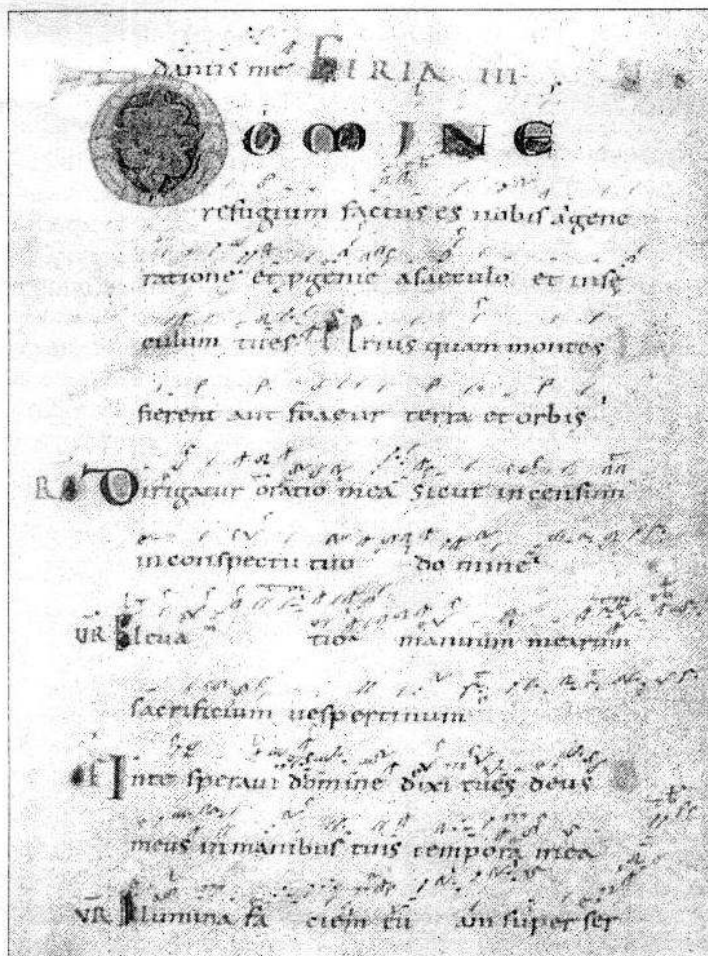 dantis me FERIA III
DOMINE
refugium factus es nobis agene
ratione et pgenie asaeculo et insę
culum tues Ps Prius quam montes
fierent aut formaretur terra et orbis
RG Dirigatur oratio mea sicut incensum
inconspectu tuo domine
VR Eleuatio manuum mearum
sacrificium uespertinum
Inte speraui domine dixi tues deus
meus inmanibus tuis tempora mea
VR Illumina faciem tuam super ser